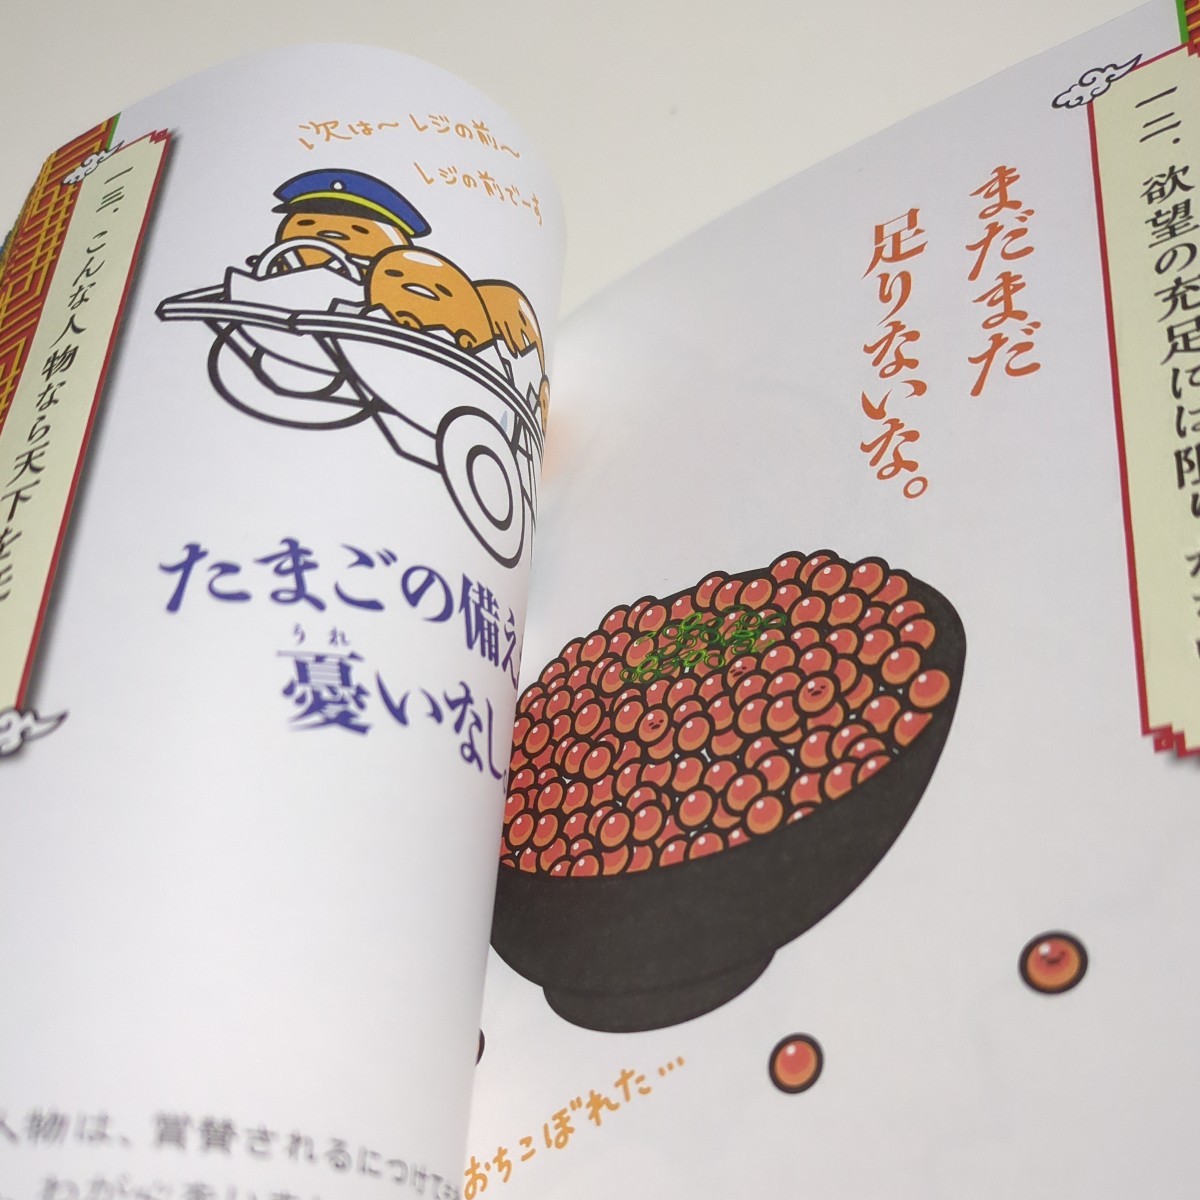 一二．欲望の充足には限り
まだまだ
足りないな。
おちこぼれた…
一三．こんな人物なら天下を
次は〜レジの前〜
レジの前でーす
たまごの備え
うれ
憂いなし
人物は、賞賛されるにつけて